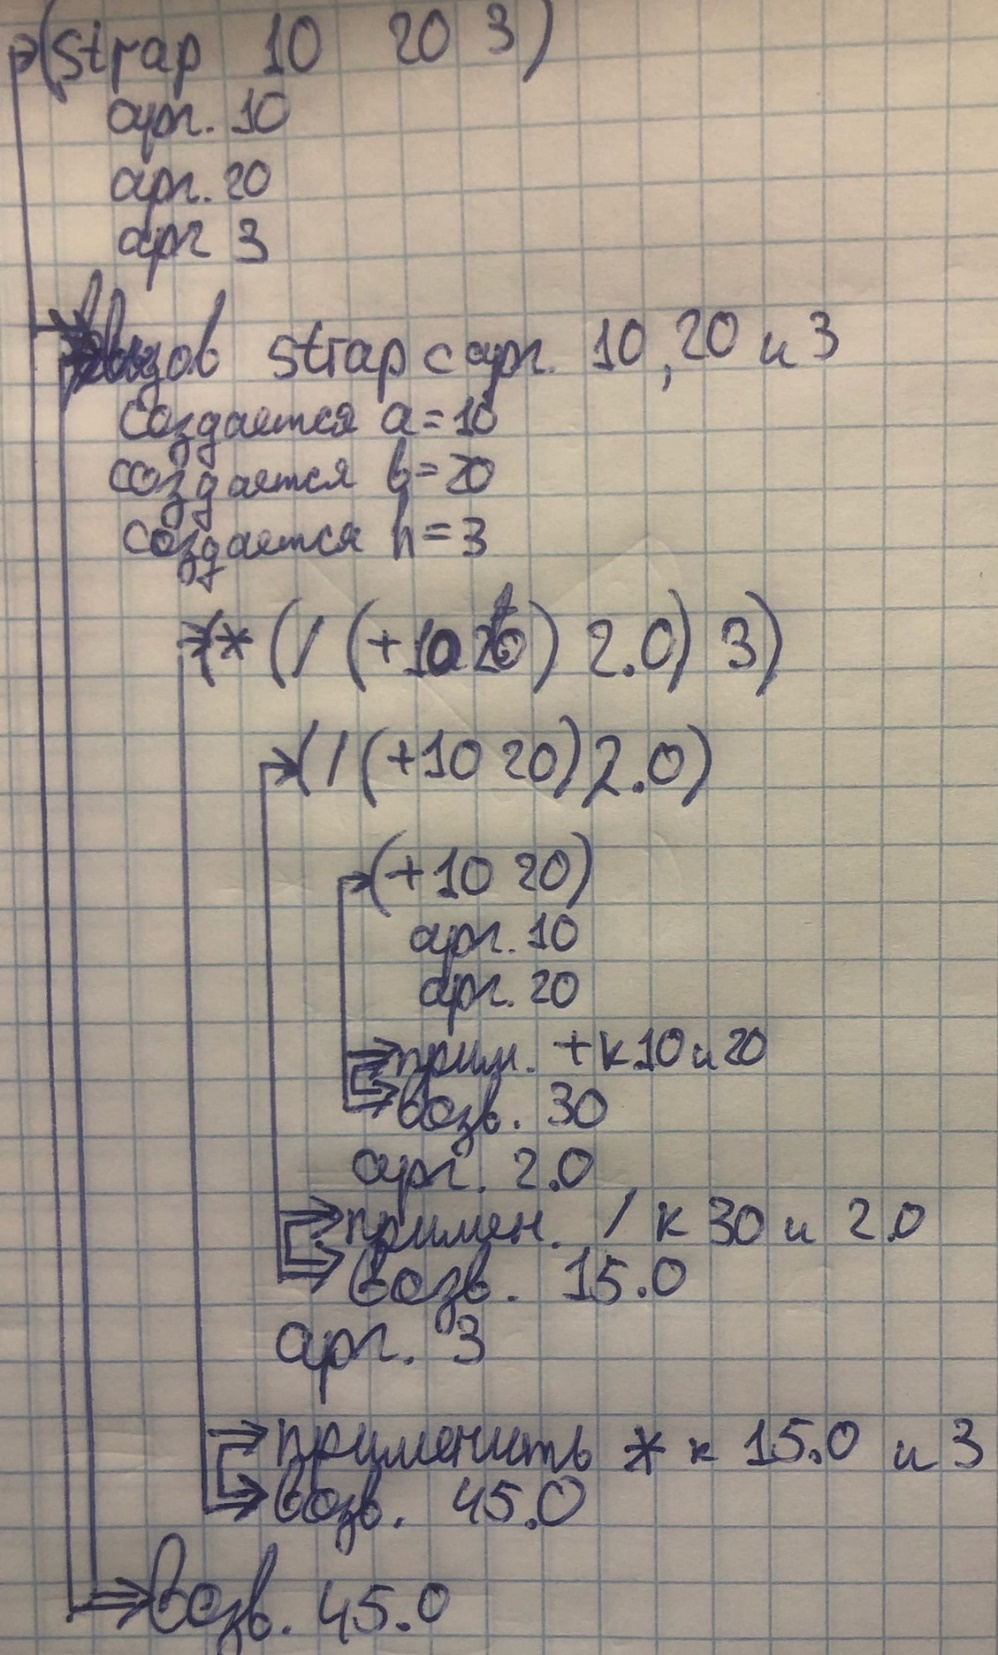 (strap 10 20 3)
арг. 10
арг. 20
арг 3
вызов strap с арг. 10, 20 и 3
создается a=10
создается b=20
создается h=3
(* (/ (+10 20) 2.0) 3)
(/ (+10 20) 2.0)
(+10 20)
арг. 10
арг. 20
прим. + к 10 и 20
возв. 30
арг. 2.0
примен. / к 30 и 2.0
возв. 15.0
арг. 3
применить * к 15.0 и 3
возв. 45.0
возв. 45.0